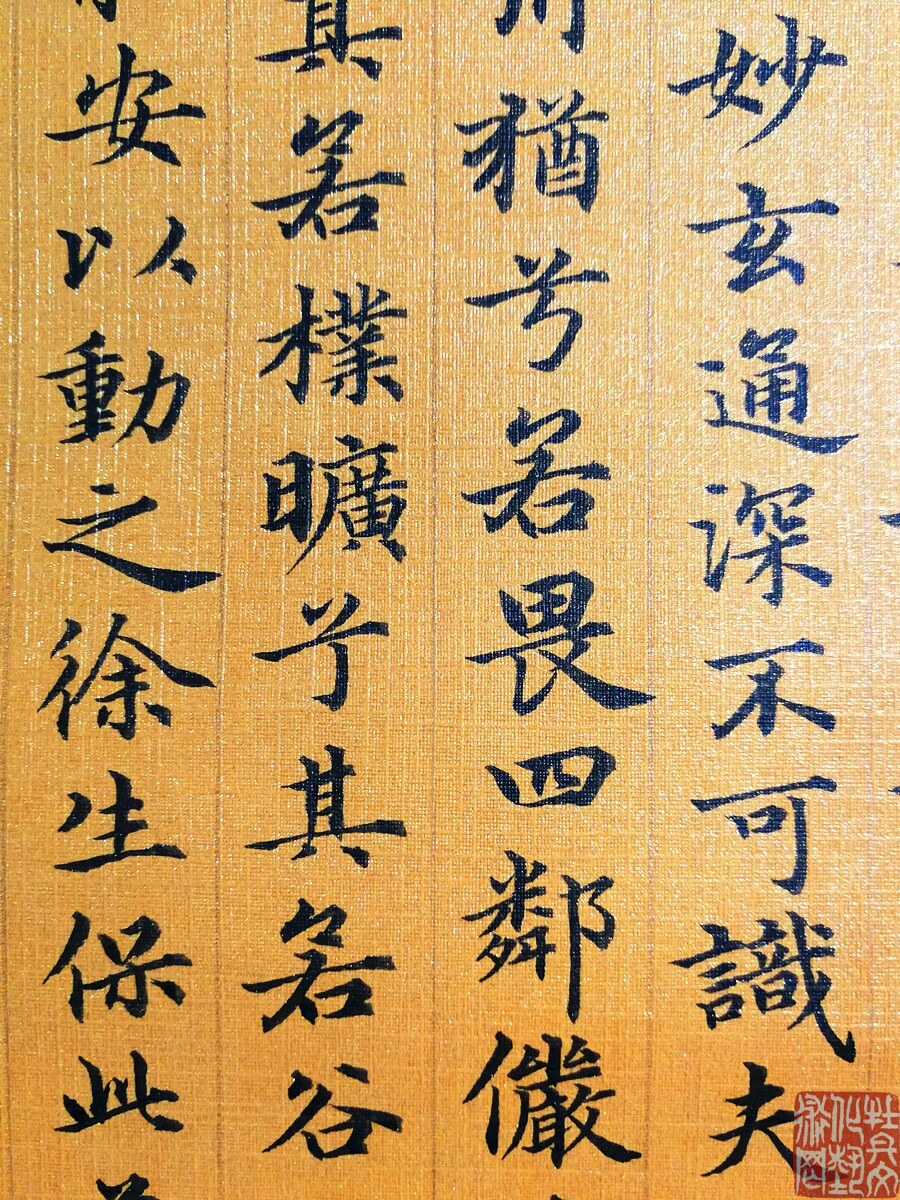 妙玄通深不可識夫
川猶兮若畏四鄰儼
其若樸曠兮其若谷
安以動之徐生保此